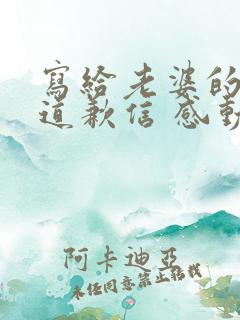 寫給老婆的
道歉信感動
阿卡迪亞
未經同意禁止轉載